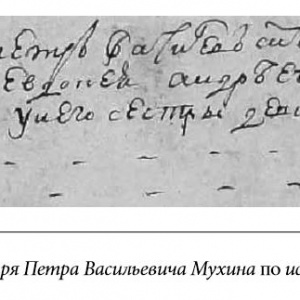 петръ васильевъ
евдокея андрѣе
у него сестры дев
ря Петра Васильевича Мухина по ис